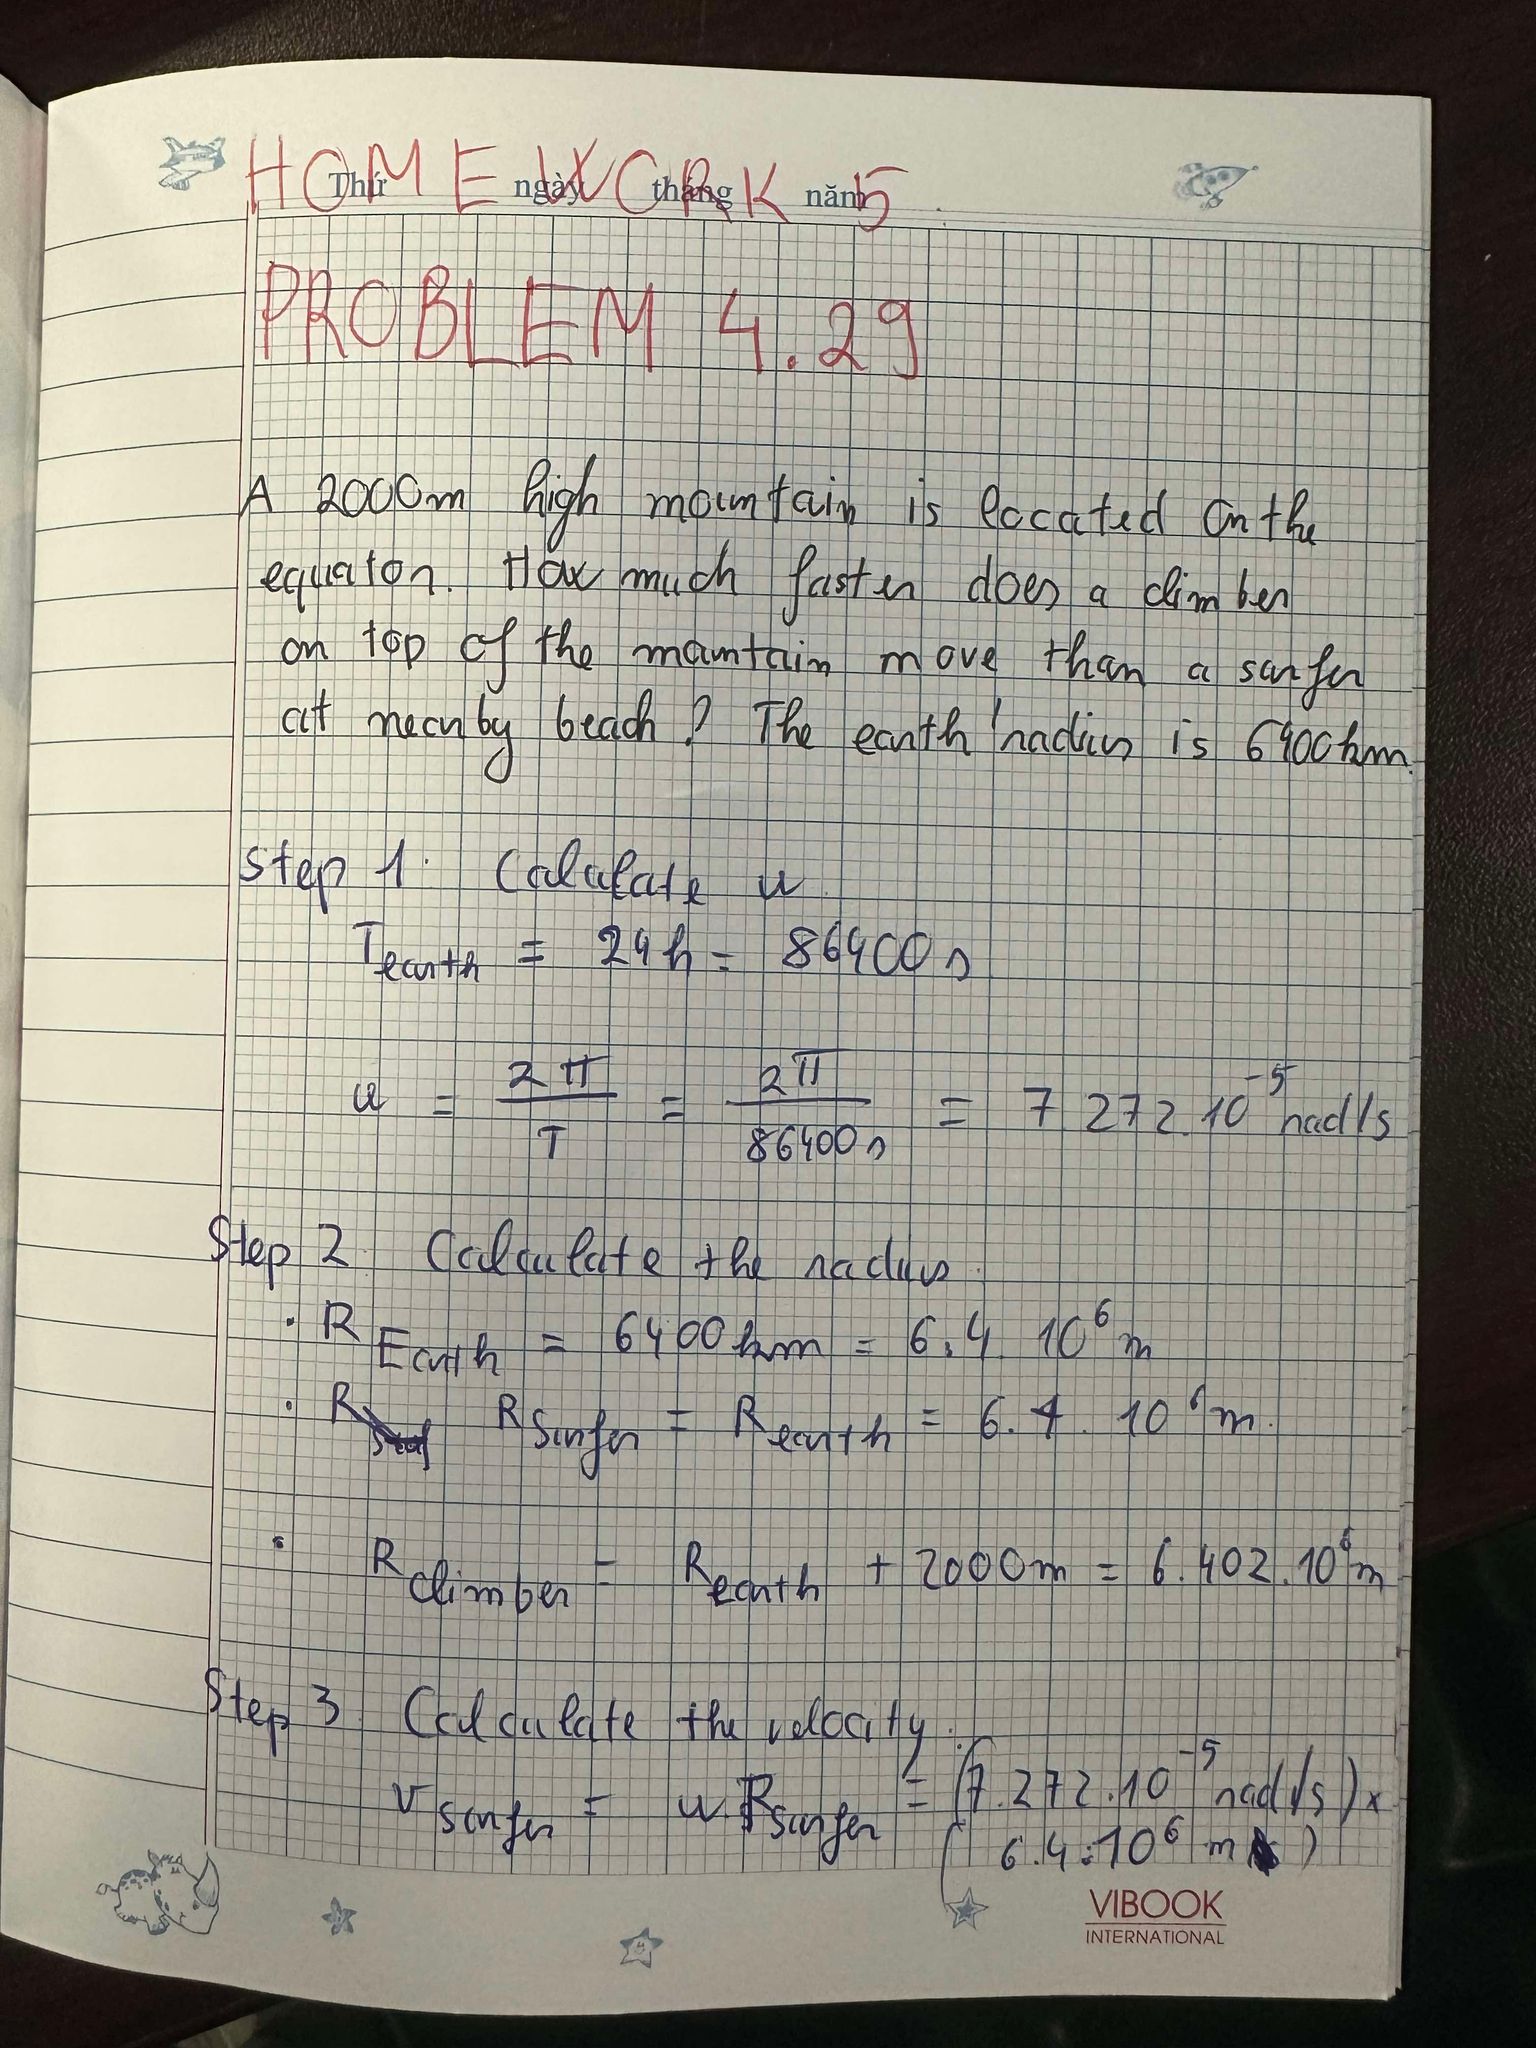 Thứ ngày tháng năm
HOMEWORK 5
PROBLEM 4.29
A 2000m high mountain is located on the
equator. How much faster does a climber
on top of the mountain move than a surfer
at nearby beach? The earth 'radius is 6400km.
Step 1. Calculate ω
T earth = 24h = 86400s
ω = 2π/T = 2π/86400s = 7.272.10⁻⁵ rad/s
Step 2. Calculate the radius.
. R Earth = 6400km = 6.4. 10⁶ m
. R surfer = R earth = 6.4. 10⁶ m.
. R climber = R earth + 2000m = 6.402.10⁶ m
Step 3. Calculate the velocity.
v surfer = ω.R surfer = (7.272.10⁻⁵ rad/s) x
( 6.4.10⁶ m )
VIBOOK
INTERNATIONAL